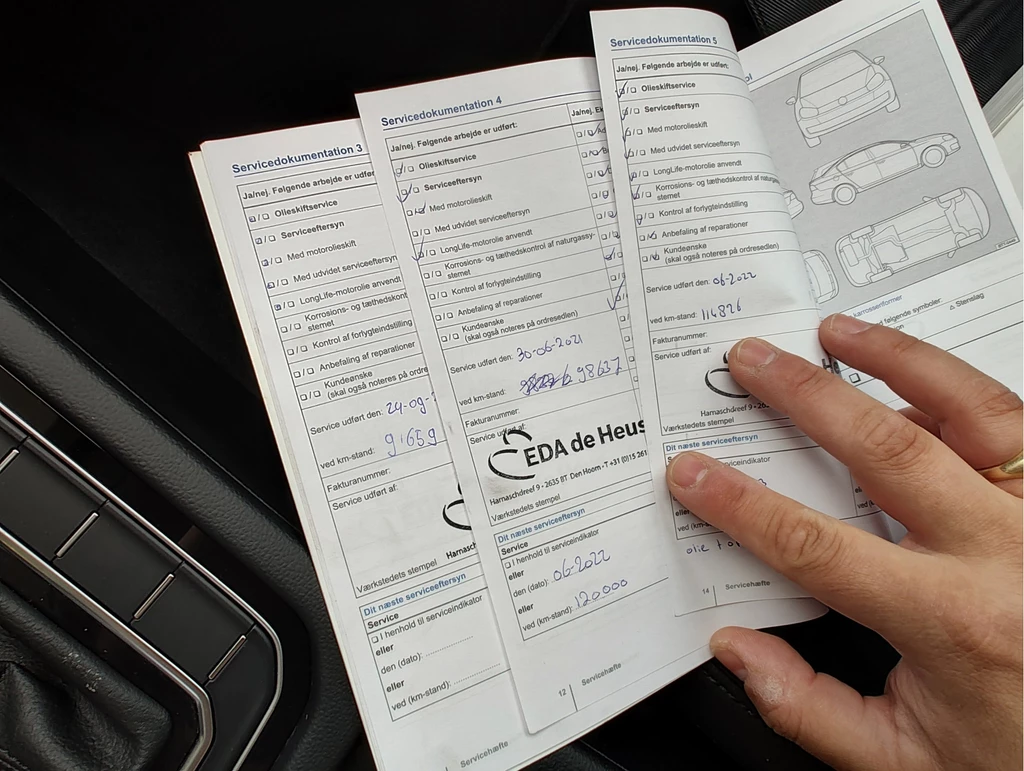 Servicedokumentation 3
Ja/nej. Følgende arbejde er udfør
Olieskiftservice
Serviceeftersyn
Med motorolieskift
Med udvidet serviceeftersyn
LongLife-motorolie anvendt
Korrosions- og tæthedskont
stemet
Kontrol af forlygteindstilling
Anbefaling af reparationer
Kundeønske
(skal også noteres på ordre
Service udført den: 24-09-
ved km-stand: 91659
Fakturanummer:
Service udført af:
Værkstedets stempel
Harnasch
Dit næste serviceeftersyn
Service
I henhold til serviceindikator
eller
den (dato):
eller
ved (km-stand):
Servicehæfte
Servicedokumentation 4
Ja/nej. Følgende arbejde er udført:
Ja/nej. Ek
Olieskiftservice
Serviceeftersyn
Med motorolieskift
Med udvidet serviceeftersyn
LongLife-motorolie anvendt
Korrosions- og tæthedskontrol af naturgassy-
stemet
Kontrol af forlygteindstilling
Anbefaling af reparationer
Kundeønske
(skal også noteres på ordresedlen)
Service udført den: 30-06-2021
ved km-stand: 98637
Fakturanummer:
Service udført af:
EDA de Heus
Harnaschdreef 9 - 2635 BT Den Hoorn - T +31 (0)15 261
Værkstedets stempel
Dit næste serviceeftersyn
Service
I henhold til serviceindikator
eller
den (dato): 06-2022
eller
ved (km-stand): 120000
12 Servicehæfte
Servicedokumentation 5
Ja/nej. Følgende arbejde er udført:
Olieskiftservice
Serviceeftersyn
Med motorolieskift
Med udvidet serviceeftersyn
LongLife-motorolie anvendt
Korrosions- og tæthedskontrol af naturgas
stemet
Kontrol af forlygteindstilling
Anbefaling af reparationer
Kundeønske
(skal også noteres på ordresedlen)
Service udført den: 06-2022
ved km-stand: 114826
Fakturanummer:
Service udført af:
Harnaschdreef 9 - 263
Værkstedets stempel
Dit næste serviceeftersyn
serviceindikator
eller
ved (km-
olie
14 Servicehæfte
ol
karrosseriformer
følgende symboler:
Stenslag